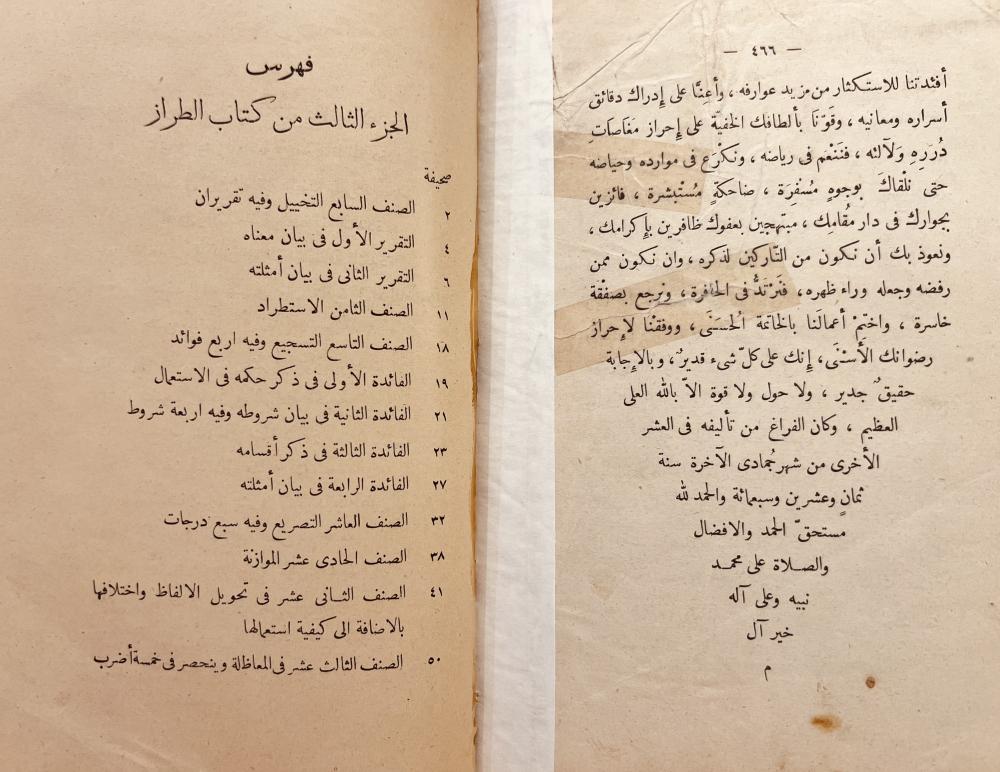 — ٤٦٦ —
أفئدتنا للاستكثار من مزيد عوارفه ، وأعِنَّا على إِدراك دقائق
أسراره ومعانيه ، وقوّنَا بألطافك الخفيّة على إِحراز مَغَاصَاتِ
دُرَرِهِ وَلَآلئه ، فنَنْعَم فى رياضه ، ونكْرَع فى موارده وحياضه
حتى نلْقاكَ بوجوهٍ مُسْفِرَة ، ضاحكةٍ مُسْتَبْشرة ، فائزين
بجوارك فى دار مُقامك ، مبتهجين بعفوك ظافرين بإِكرامك ،
ونعوذ بك أن نكون من التّاركين لذكره ، وان نكون ممن
رفضه وجعله وراء ظهره ، فنَرْتَدَّ فى الحافرة ، ونرجع بصفْقة
خاسرة ، واختِمْ أعمالَنا بالخاتمة الْحسنَى ، ووفقْنا لإِحراز
رضوانك الأَسْنَى ، إِنك على كلّ شىء قديرٌ ، وبالإِجابة
حقيقٌ جدير ، ولا حول ولا قوة الاّ بالله العلى
العظيم ، وكان الفراغ من تأليفه فى العشر
الأخرى من شهر جُمادى الآخرة سنة
ثمانٍ وعشرين وسبعمائة والحمد لله
مستحقّ الحمد والافضال
والصلاة على محمد
نبيه وعلى آله
خير آل
م
فهرس
الجزء الثالث من كتاب الطراز
صحيفة
٢ الصنف السابع التخييل وفيه تقريران
٤ التقرير الأول فى بيان معناه
٦ التقرير الثانى فى بيان أمثلته
١١ الصنف الثامن الاستطراد
١٨ الصنف التاسع التسجيع وفيه اربع فوائد
١٩ الفائدة الأولى فى ذكر حكمه فى الاستعمال
٢١ الفائدة الثانية فى بيان شروطه وفيه اربعة شروط
٢٣ الفائدة الثالثة فى ذكر أقسامه
٢٧ الفائدة الرابعة فى بيان أمثلته
٣٢ الصنف العاشر التصريع وفيه سبع درجات
٣٨ الصنف الحادى عشر الموازنة
٤١ الصنف الثانى عشر فى تحويل الالفاظ واختلافها
بالاضافة الى كيفية استعمالها
٥٠ الصنف الثالث عشر فى المعاظلة وينحصر فى خمسة أضرب